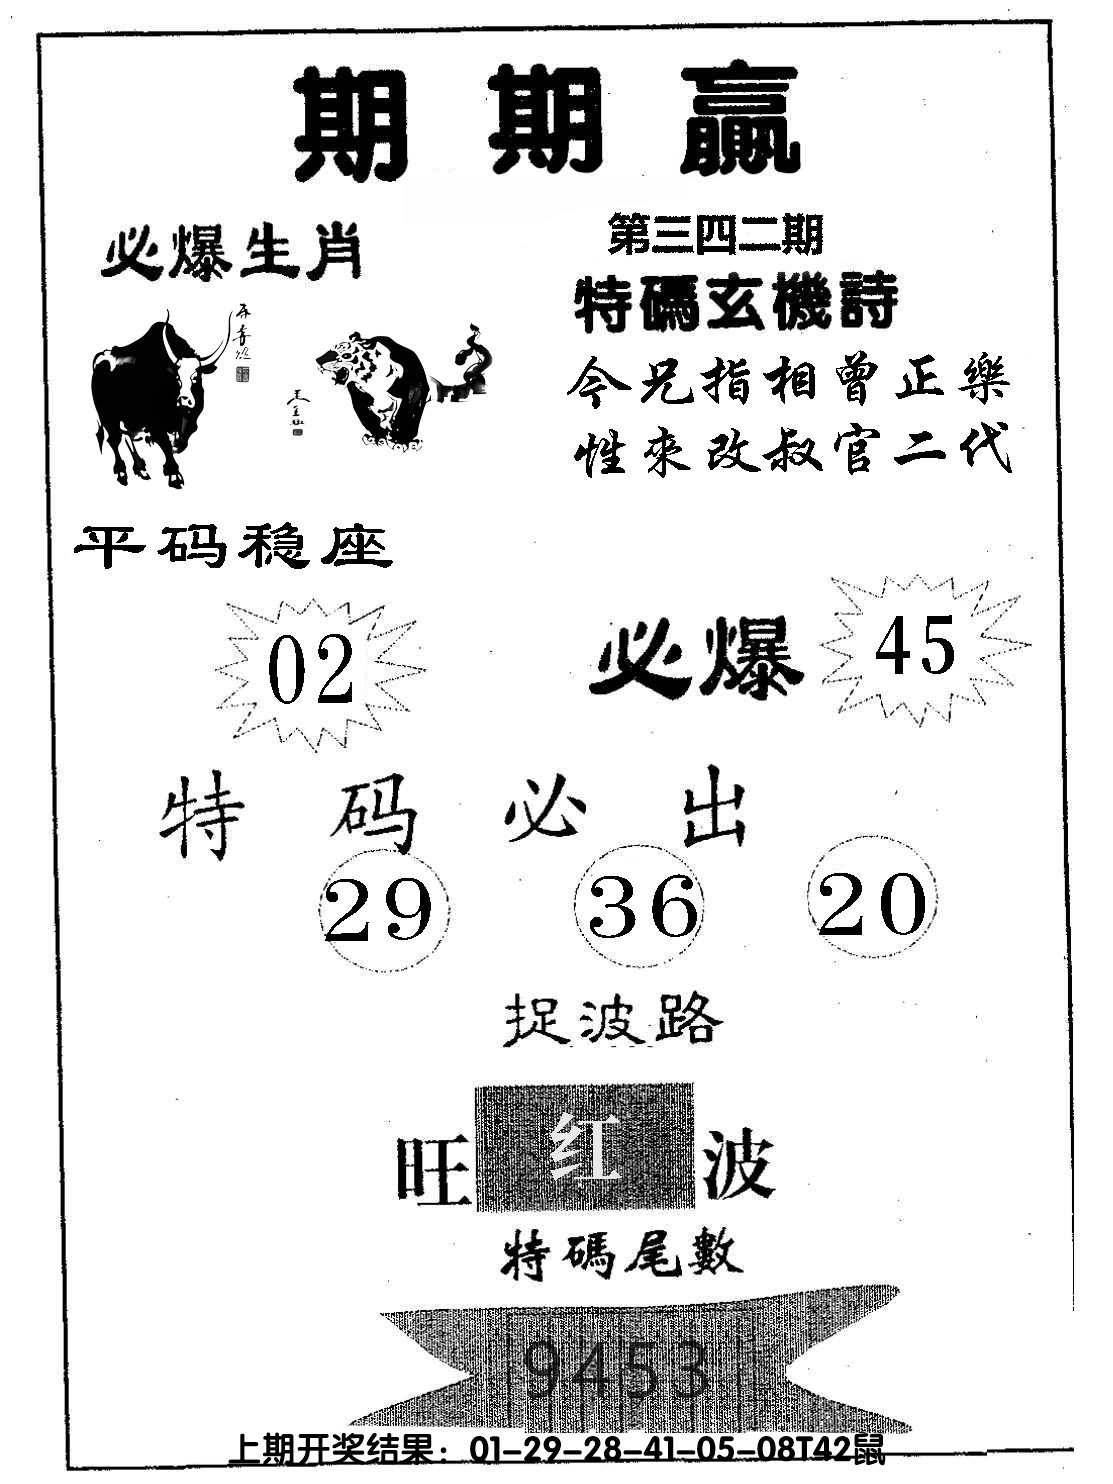 期期贏
第三四二期
必爆生肖
特碼玄機詩
今兄指相曾正樂
性來改叔官二代
平码稳座
02
必爆
45
特码必出
29 36 20
捉波路
旺红波
特碼尾數
9453
上期开奖结果：01-29-28-41-05-08T42鼠